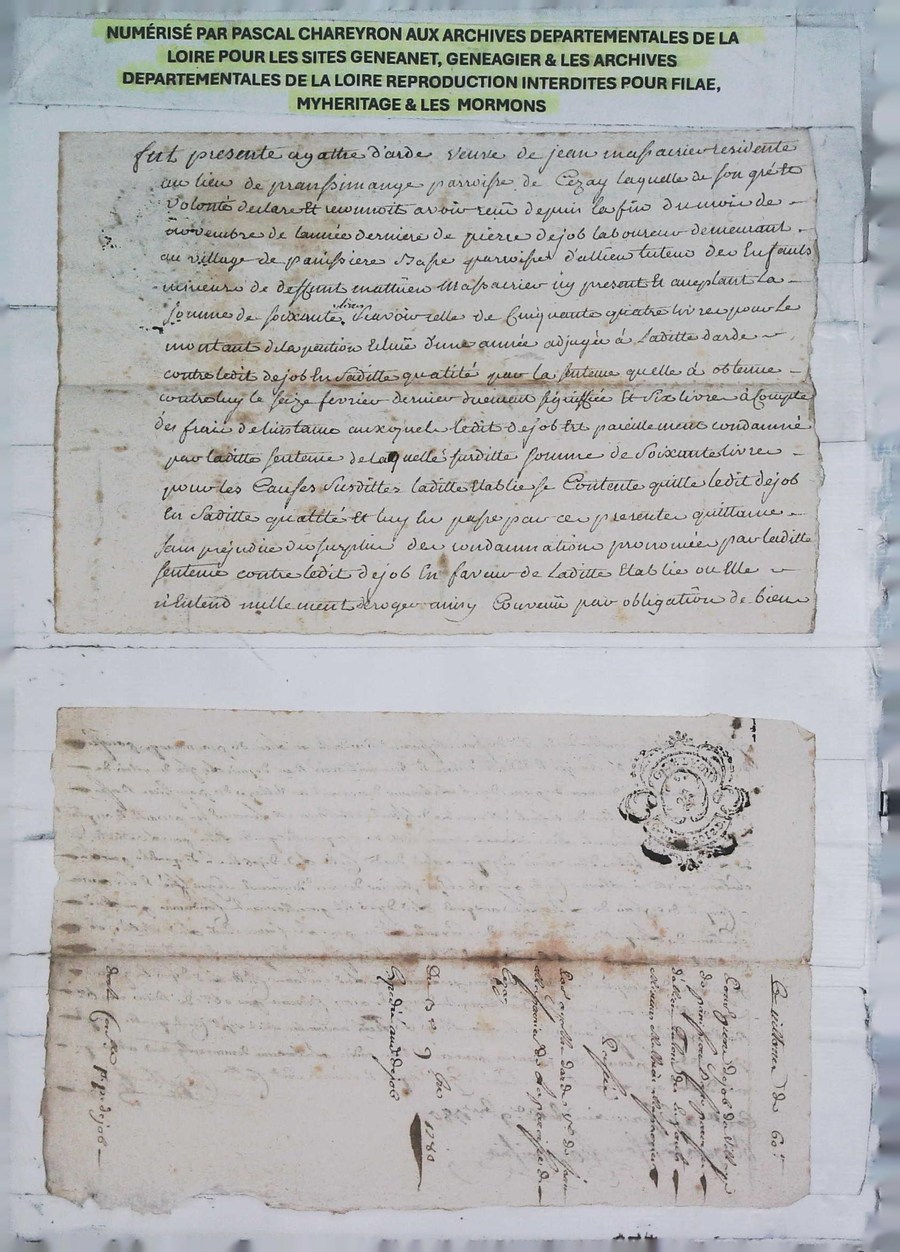 NUMÉRISÉ PAR PASCAL CHAREYRON AUX ARCHIVES DEPARTEMENTALES DE LA
LOIRE POUR LES SITES GENEANET, GENEAGIER & LES ARCHIVES
DEPARTEMENTALES DE LA LOIRE REPRODUCTION INTERDITES POUR FILAE,
MYHERITAGE & LES MORMONS
fut presente agatthe d'arde veuve de jean massacrier residente
au lieu de pranssimange parroisse de Cezay laquelle de son gré et
volonté declare et reconnoit avoir reçû depuis la fin du mois de
novembre de l'année derniere de pierre dejob laboureur demeurant
au village de panissiere parroisse d'allieu tuteur des Enfants
mineurs de deffunt mathieu Massacrier icy present et aceptant la
somme de soixante livres sçavoir celle de Cinquante quatre livres pour le
montant de la pention d'une année adjugée à Laditte darde
contre ledit dejob En saditte qualité par la sentence quelle à obtenue
contre luy le seize fevrier dernier duement signiffiée Et six livres à Compte
des frais de linstance auxquels ledit dejob Est pareillement condamné
par laditte sentence de laquelle susditte somme de soixante livres
pour les Causes susdittes laditte Etablie se Contente quitte ledit dejob
En saditte qualité Et luy en passe par ces presentes quittance
sans prejudice du surplus des condamnations prononcées par laditte
sentence contre ledit dejob En faveur de Laditte Etablie ou Elle
n'Entend nullement deroger ainsy Convenu par obligation de biens
Quittance de 60
dejob du village
de
d'allieu tuteur des Enfants
Passée
Par agatthe darde ve de jean
de la parroisse de
Cezay
Du 13 9bre 1780
Expedié aud. dejob
dejob